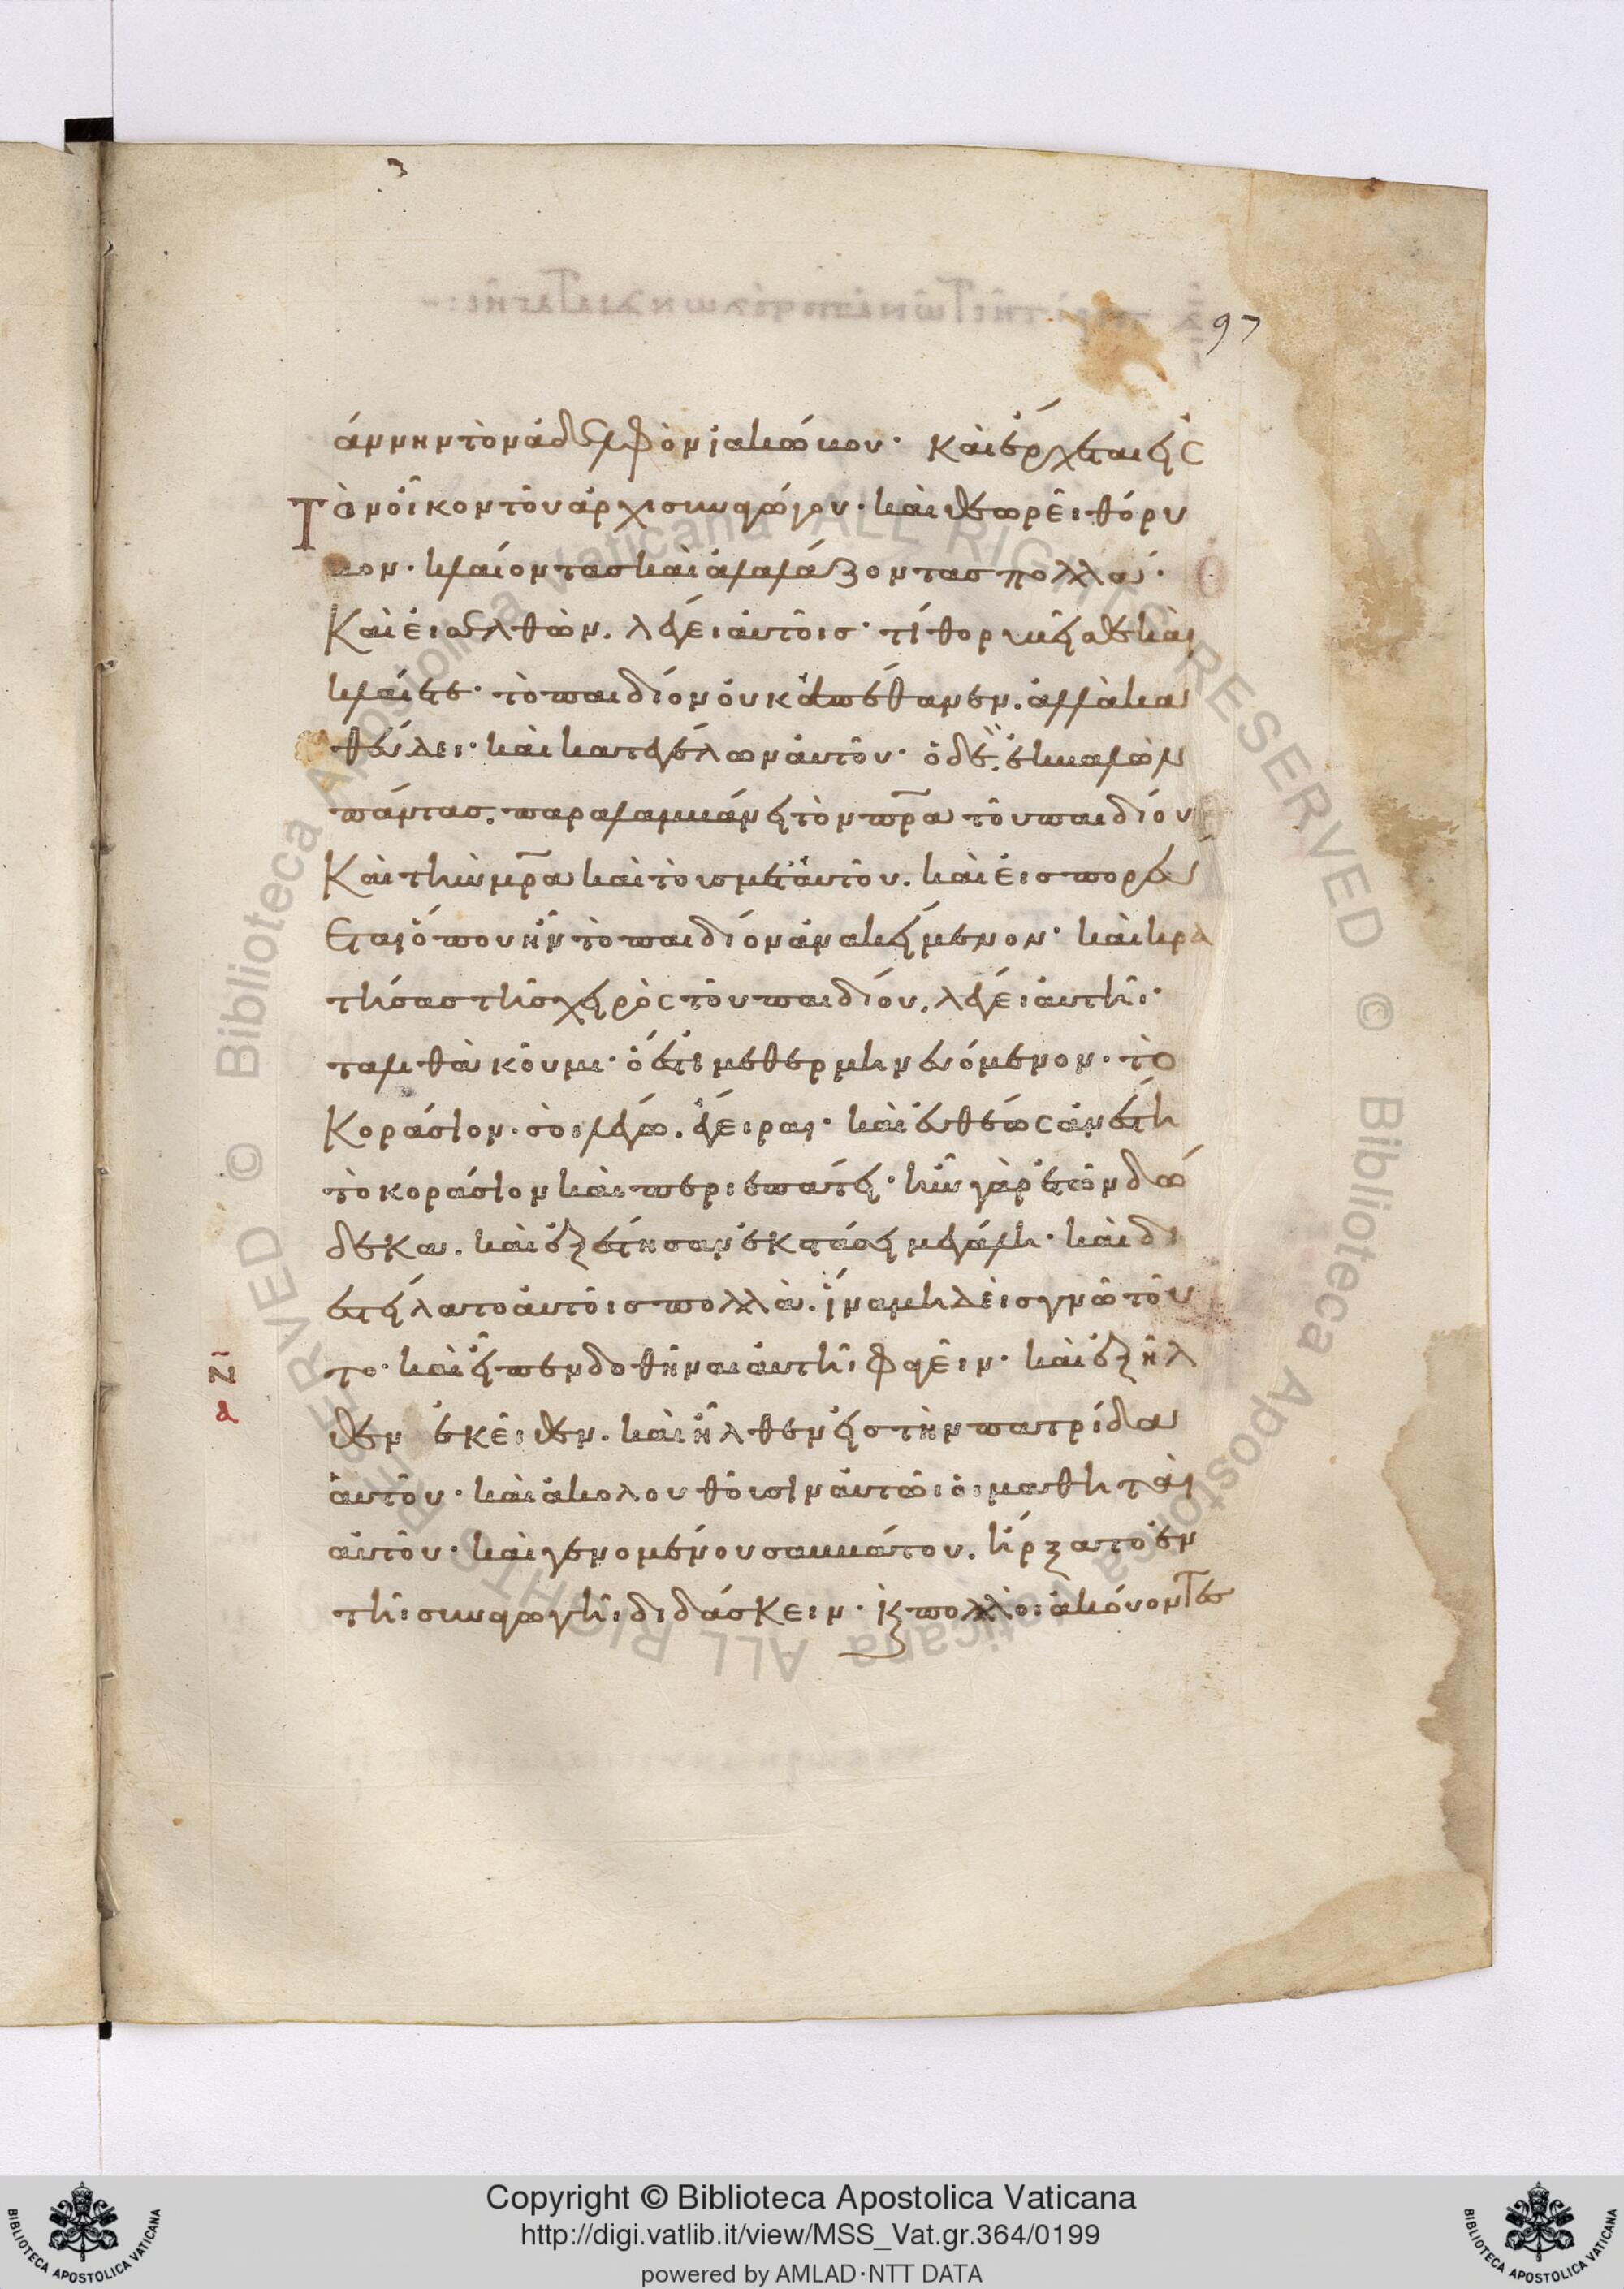 97
άννην τὸν ἀδελφὸν ἰακώβου· Καὶ ἔρχεται εἰς
Τὸν οἶκον τοῦ ἀρχισυναγώγου· καὶ θεωρεῖ θόρυ
βον· κλαίοντας καὶ ἀλαλάζοντας πολλά·
Καὶ εἰσελθὼν. λέγει αὐτοῖς· τί θορυβεῖσθε καὶ
κλαίετε· τὸ παιδίον οὐκ ἀπέθανεν. ἀλλὰ κα
θεύδει· καὶ κατεγέλων αὐτοῦ· ὁ δὲ. ἐκβαλὼν
πάντας. παραλαμβάνει τὸν πρ̅α τοῦ παιδίου
Καὶ τὴν μρ̅α καὶ τοὺς μετ' αὐτοῦ. καὶ εἰσπορεύ
Εται ὅπου ἦν τὸ παιδίον ἀνακείμενον· καὶ κρα
τήσας τῆς χειρὸς τοῦ παιδίου. λέγει αὐτῆι·
ταλιθὰ κοῦμι· ὅ ἐστι μεθερμηνευόμενον· τὸ
Κοράσιον· σοὶ λέγω. ἔγειραι· καὶ εὐθέως ἀνέστη
τὸ κοράσιον καὶ περιεπάτει· ἦν γὰρ ἐτῶν δώ
δεκα. καὶ ἐξέστησαν ἐκστάσει μεγάλη· καὶ δι
εστείλατο αὐτοῖς πολλὰ. ἵνα μηδεὶς γνῶ τοῦ
το· καὶ εἶπεν δοθῆναι αὐτῆι φαγεῖν· καὶ ἐξῆλ
θεν ἐκεῖθεν. καὶ ἦλθεν εἰς τὴν πατρίδα
αὐτοῦ· καὶ ἀκολουθοῦσιν αὐτῶι οἱ μαθηταὶ
αὐτοῦ· καὶ γενομένου σαββάτου. ἤρξατο ἐν
τῆι συναγωγῆι διδάσκειν· κ πολλοὶ ἀκούοντες
ν̅
α
Copyright © Biblioteca Apostolica Vaticana
http://digi.vatlib.it/view/MSS_Vat.gr.364/0199
powered by AMLAD·NTT DATA
BIBLIOTECA APOSTOLICA VATICANA
BIBLIOTECA APOSTOLICA VATICANA
© Biblioteca Apostolica Vaticana ALL RIGHTS RESERVED
© Biblioteca Apostolica Vaticana ALL RIGHTS RESERVED